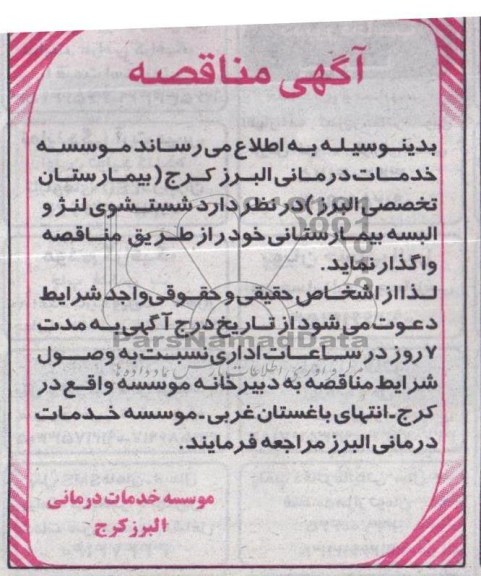 آگهی مناقصه
بدینوسیله به اطلاع می رساند موسسه
خدمات درمانی البرز کرج (بیمارستان
تخصصی البرز) در نظر دارد شستشوی لنژ و
البسه بیمارستانی خود را از طریق مناقصه
واگذار نماید.
لذا از اشخاص حقیقی و حقوقی واجد شرایط
دعوت می شود از تاریخ درج آگهی به مدت
ParsNamadData
۷ روز در ساعات اداری نسبت به وصول
شرایط مناقصه به دبیرخانه موسسه واقع در
کرج-انتهای باغستان غربی-موسسه خدمات
درمانی البرز مراجعه فرمایند.
موسسه خدمات درمانی
البرز کرج